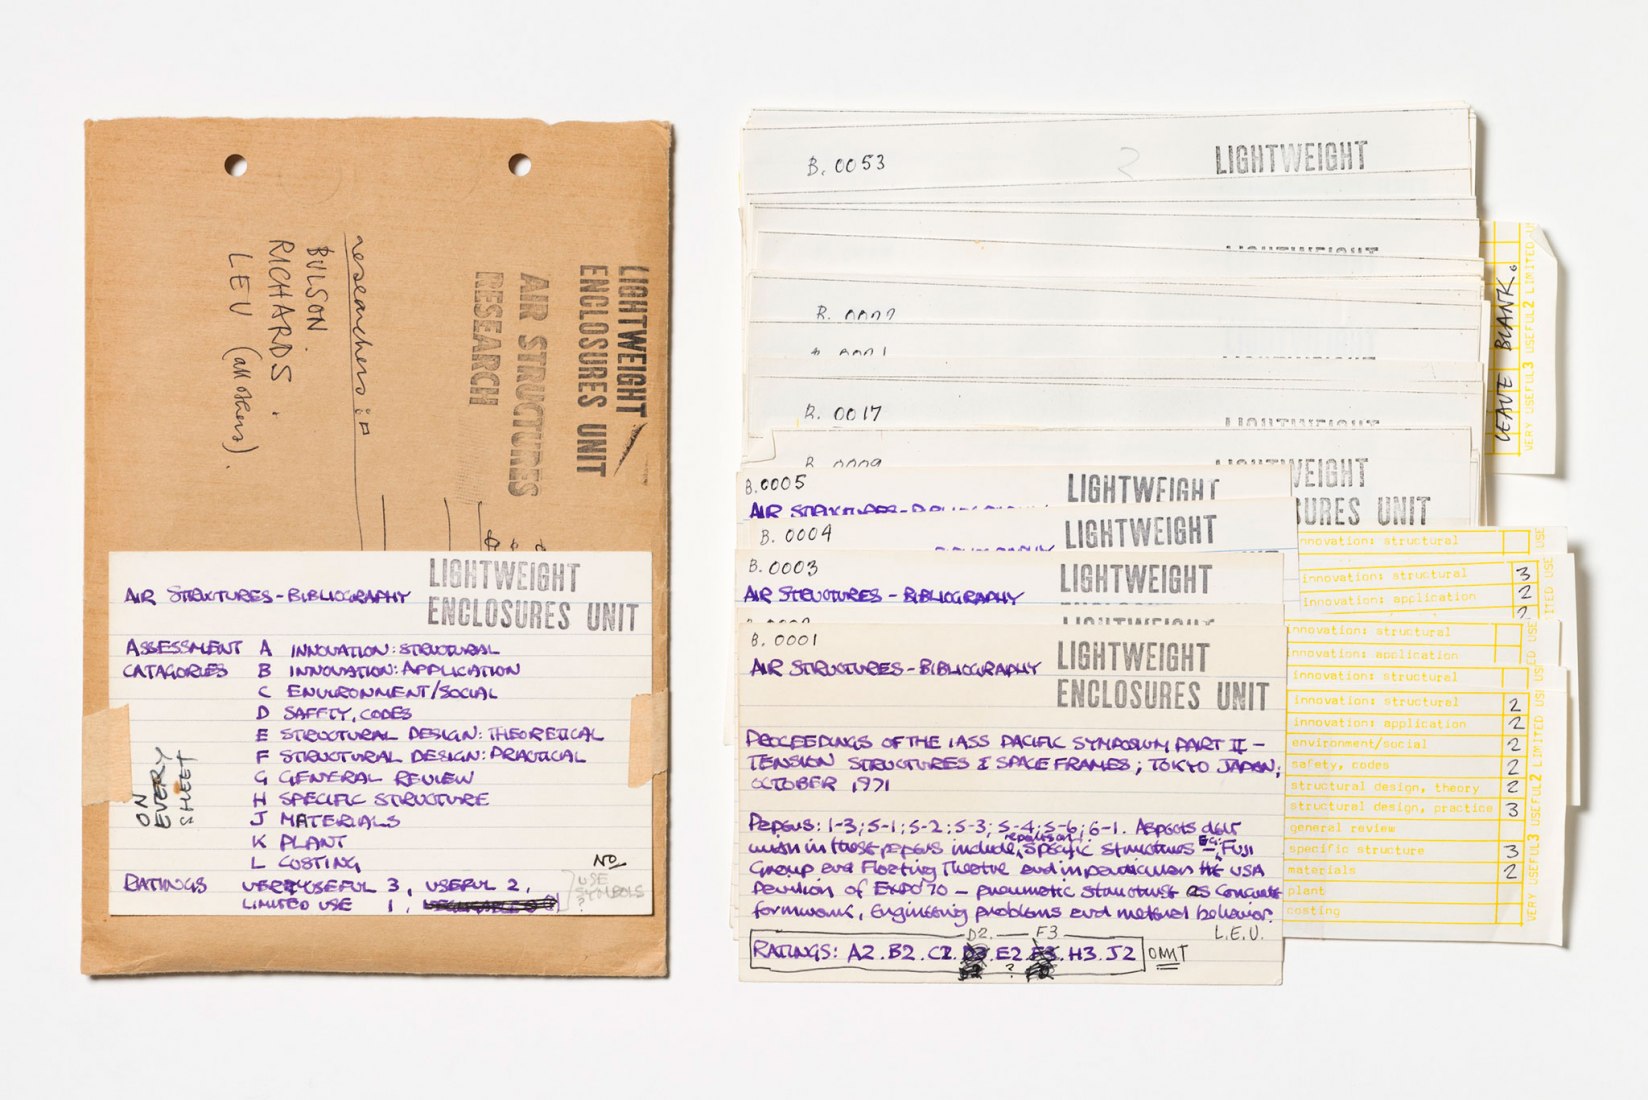 LIGHTWEIGHT
ENCLOSURES UNIT
AIR STRUCTURES
RESEARCH
researchers:
BULSON.
RICHARDS.
LEU (all others).
LIGHTWEIGHT
ENCLOSURES UNIT
AIR STRUCTURES - BIBLIOGRAPHY
ASSESSMENT A INNOVATION: STRUCTURAL
CATAGORIES B INNOVATION: APPLICATION
C ENVIRONMENT/SOCIAL
D SAFETY, CODES
E STRUCTURAL DESIGN: THEORETICAL
F STRUCTURAL DESIGN: PRACTICAL
G GENERAL REVIEW
H SPECIFIC STRUCTURE
J MATERIALS
K PLANT
L COSTING
RATINGS VERY USEFUL 3, USEFUL 2,
LIMITED USE 1,
NO
USE
SYMBOLS
?
ON
EVERY
SHEET
B. 0053
2
LIGHTWEIGHT
LIGHTWEIGHT
B. 0017
LIGHTWEIGHT
B. 0009
LIGHTWEIGHT
ENCLOSURES UNIT
LEAVE BLANK.
VERY USEFUL3 USEFUL2 LIMITED
B.0005
LIGHTWEIGHT
AIR STRUCTURES - BIBLIOGRAPHY
B. 0004
LIGHTWEIGHT
B.0003
LIGHTWEIGHT
AIR STRUCTURES - BIBLIOGRAPHY
B. 0001
LIGHTWEIGHT
ENCLOSURES UNIT
AIR STRUCTURES - BIBLIOGRAPHY
PROCEEDINGS OF THE IASS PACIFIC SYMPOSIUM PART II -
TENSION STRUCTURES & SPACE FRAMES; TOKYO JAPAN;
OCTOBER 1971
Papers: 1-3; 5-1; 5-2; 5-3; 5-4; 5-6; 6-1. Aspects dealt
with in these papers include, specific structures - Eg: Fuji
Group and Floating Theatre and in particular the USA
Pavilion of Expo '70 - pneumatic structures as concrete
formwork, Engineering problems and material behavior.
L.E.U.
D2. F3
RATINGS: A2. B2. C2. E2. H3. J2
?
OMIT
innovation: structural
innovation: structural 3
innovation: application 2
innovation: structural
innovation: application
innovation: structural
innovation: structural 2
innovation: application 2
environment/social 2
safety, codes 2
structural design, theory 2
structural design, practice 3
general review
specific structure 3
materials 2
plant
costing
VERY USEFUL3 USEFUL2 LIMITED USE